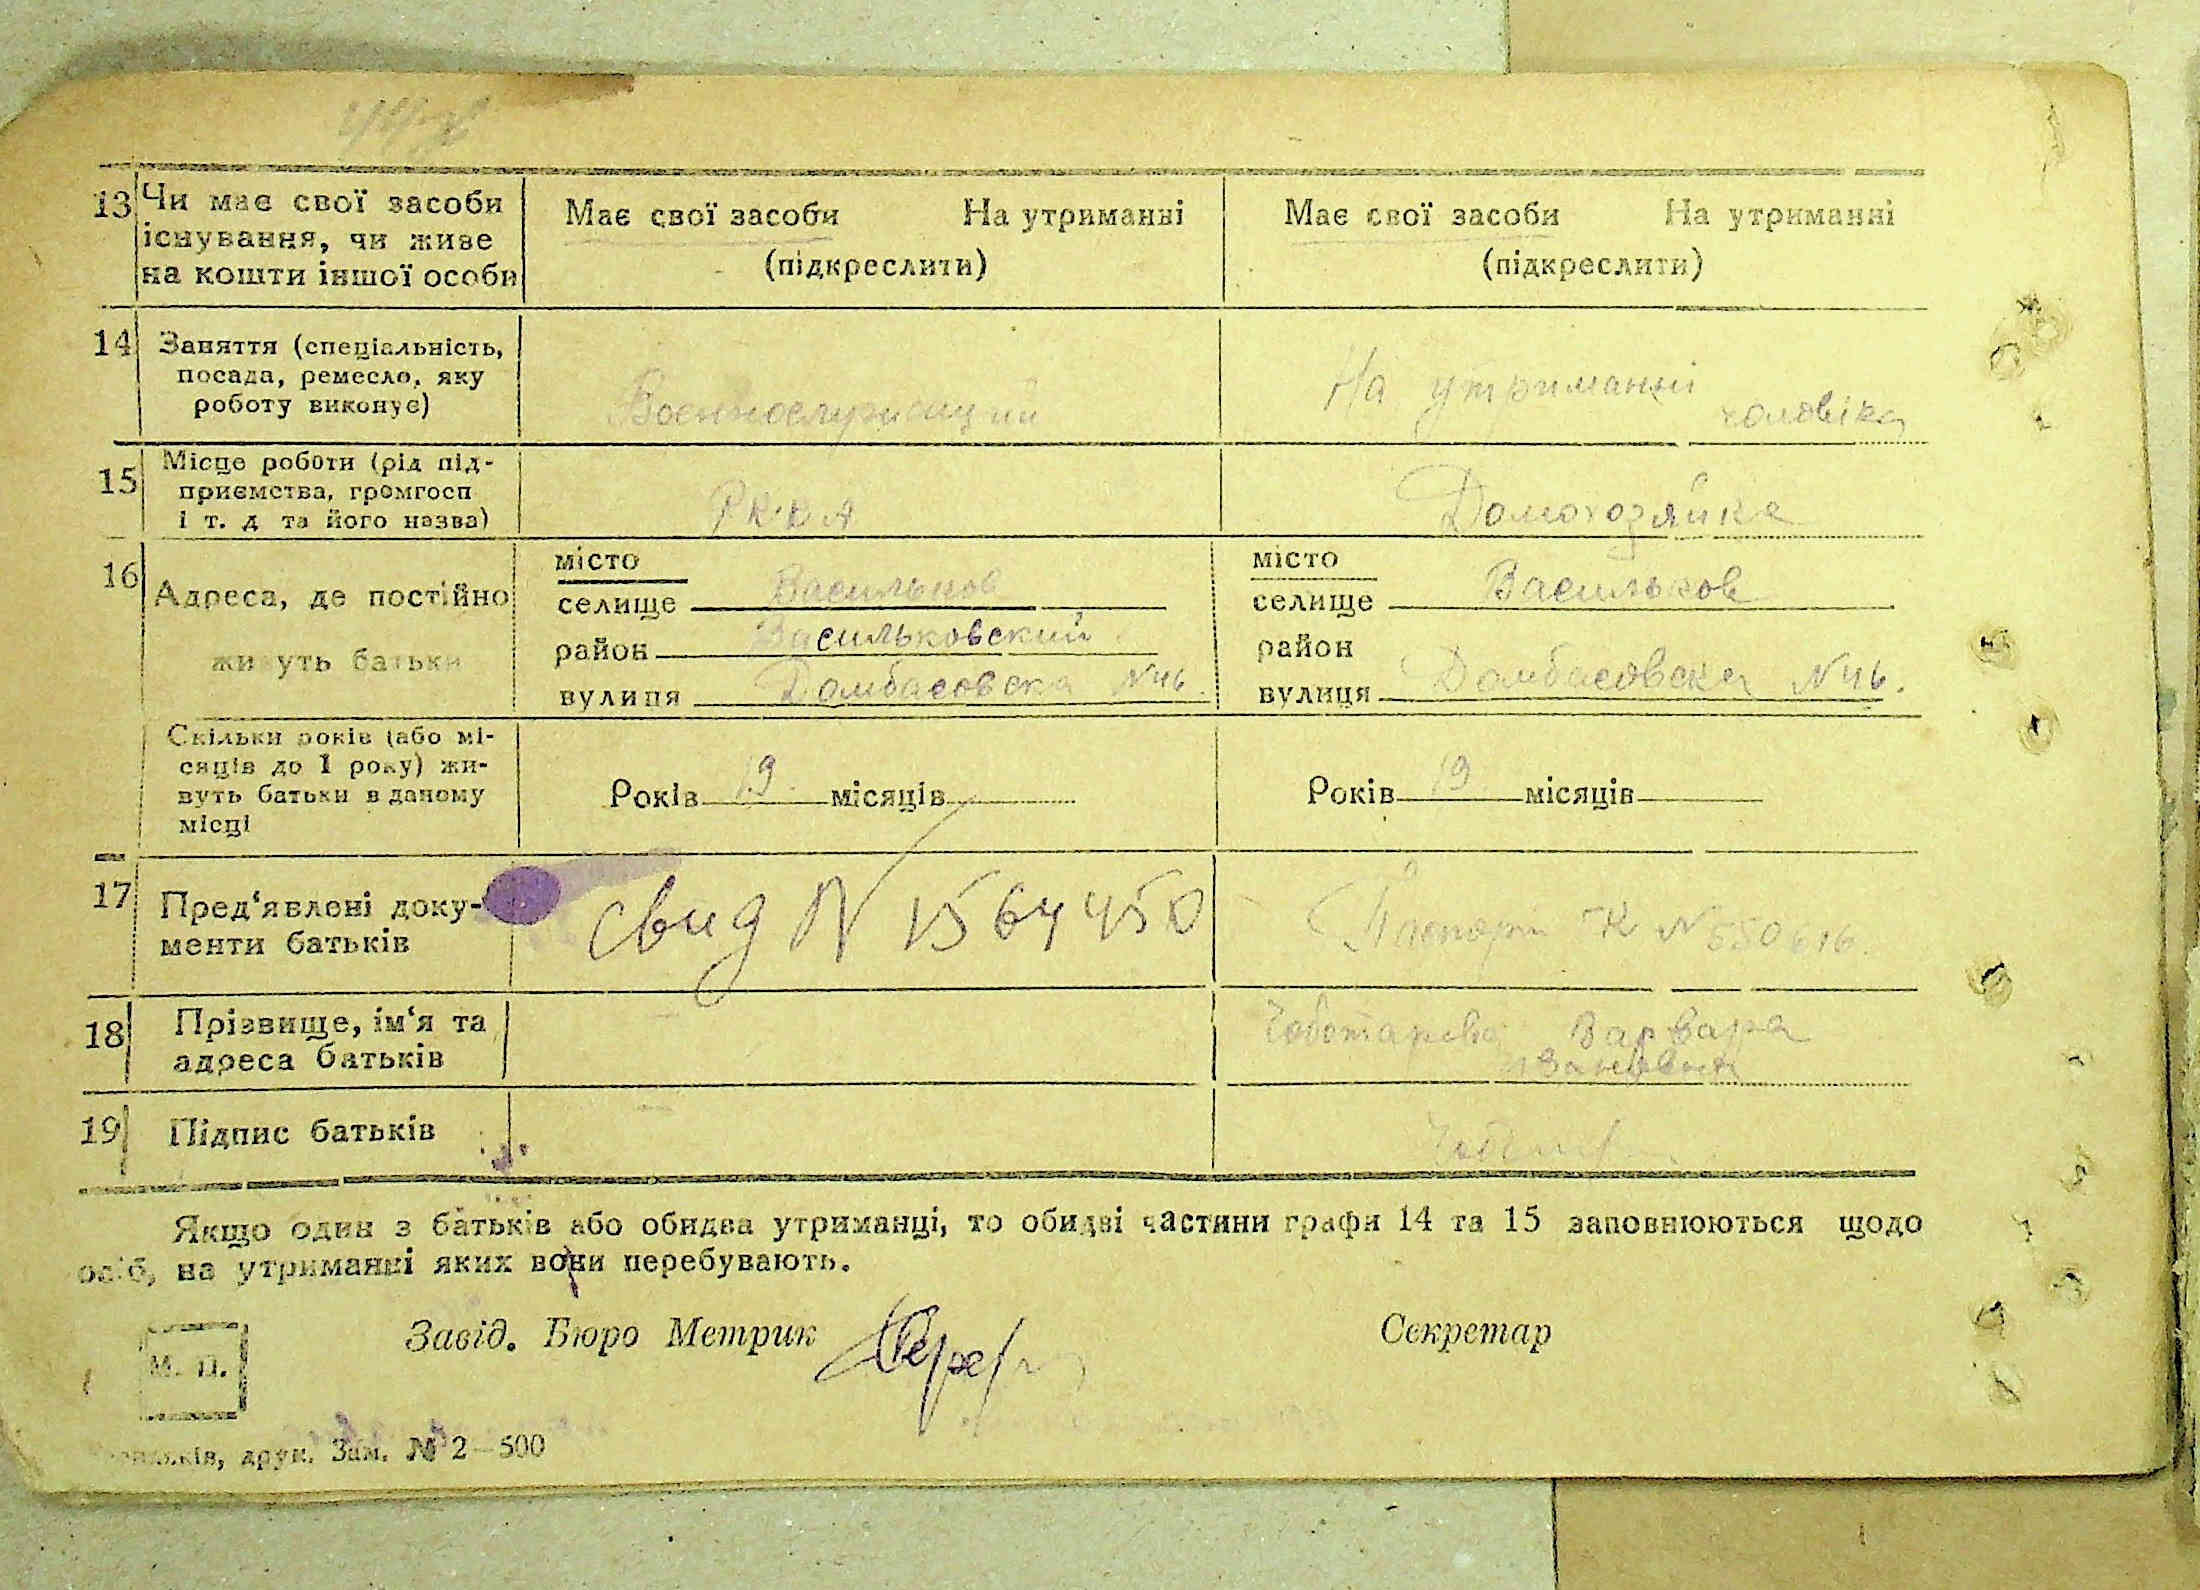 13 Чи має свої засоби існування, чи живе на кошти іншої особи
Має свої засоби На утриманні
(підкреслити)
Має свої засоби На утриманні
(підкреслити)
14 Заняття (спеціальність,
посада, ремесло, яку
роботу виконує)
Военнослужащий
На утриманні
чоловіка
15 Місце роботи (рід під-
приємства, громгосп
і т. д та його назва)
Р К К А
Домохозяйка
16 Адреса, де постійно
живуть батьки
місто
селище Васильков
район Васильковский
вулиця Домбасовска №46.
місто
селище Васильков
район
вулиця Домбасовска №46.
Скільки років (або мі-
сяців до 1 року) жи-
вуть батьки в даному
місці
Років 19 місяців
Років 19 місяців
17 Пред'явлені доку-
менти батьків
Свид № 1564450
Паспорт К № 550616.
18 Прізвище, ім'я та
адреса батьків
Варвара
19 Підпис батьків
Якщо один з батьків або обидва утриманці, то обидві частини графи 14 та 15 заповнюються щодо
осіб, на утриманні яких вони перебувають.
М. П.
Завід. Бюро Метрик
Секретар
друк. Зам. № 2—500